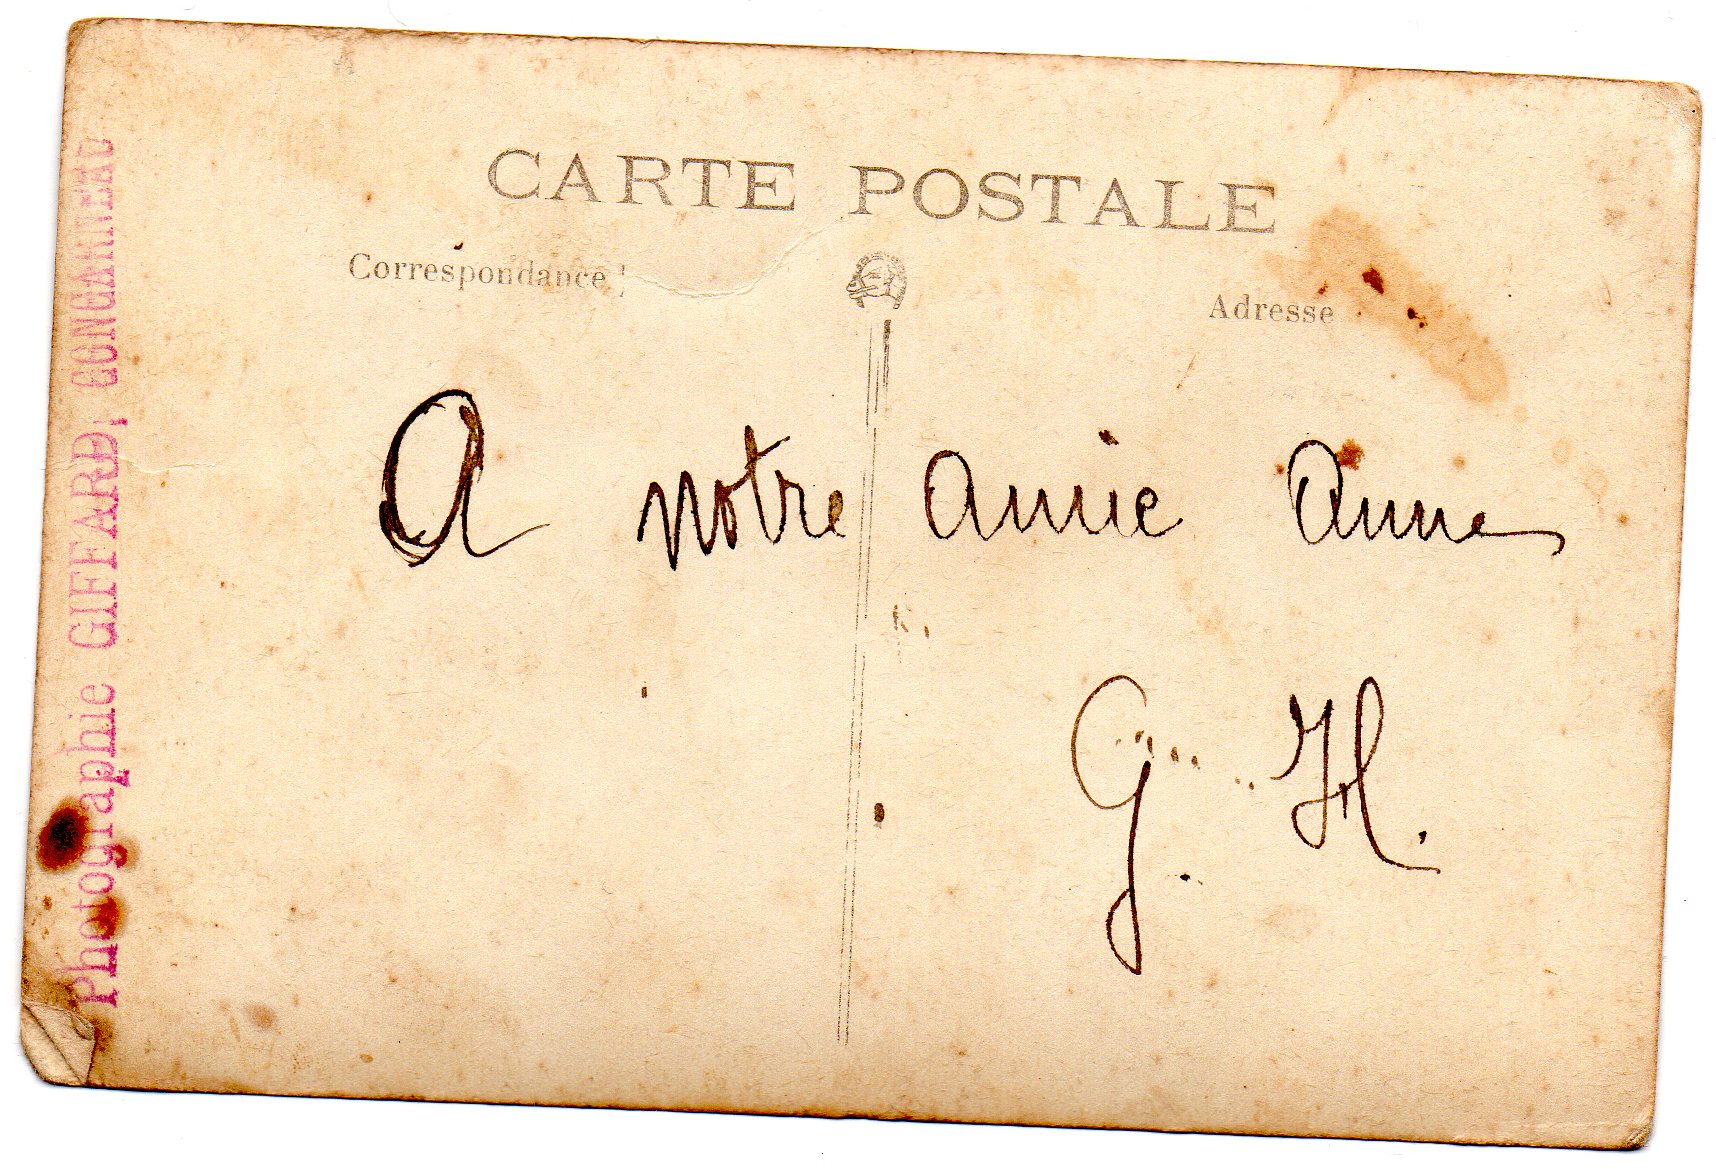 CARTE POSTALE
Correspondance
Adresse
A notre amie Anne
G. H.
Photographie GIFFARD, CONCARNEAU